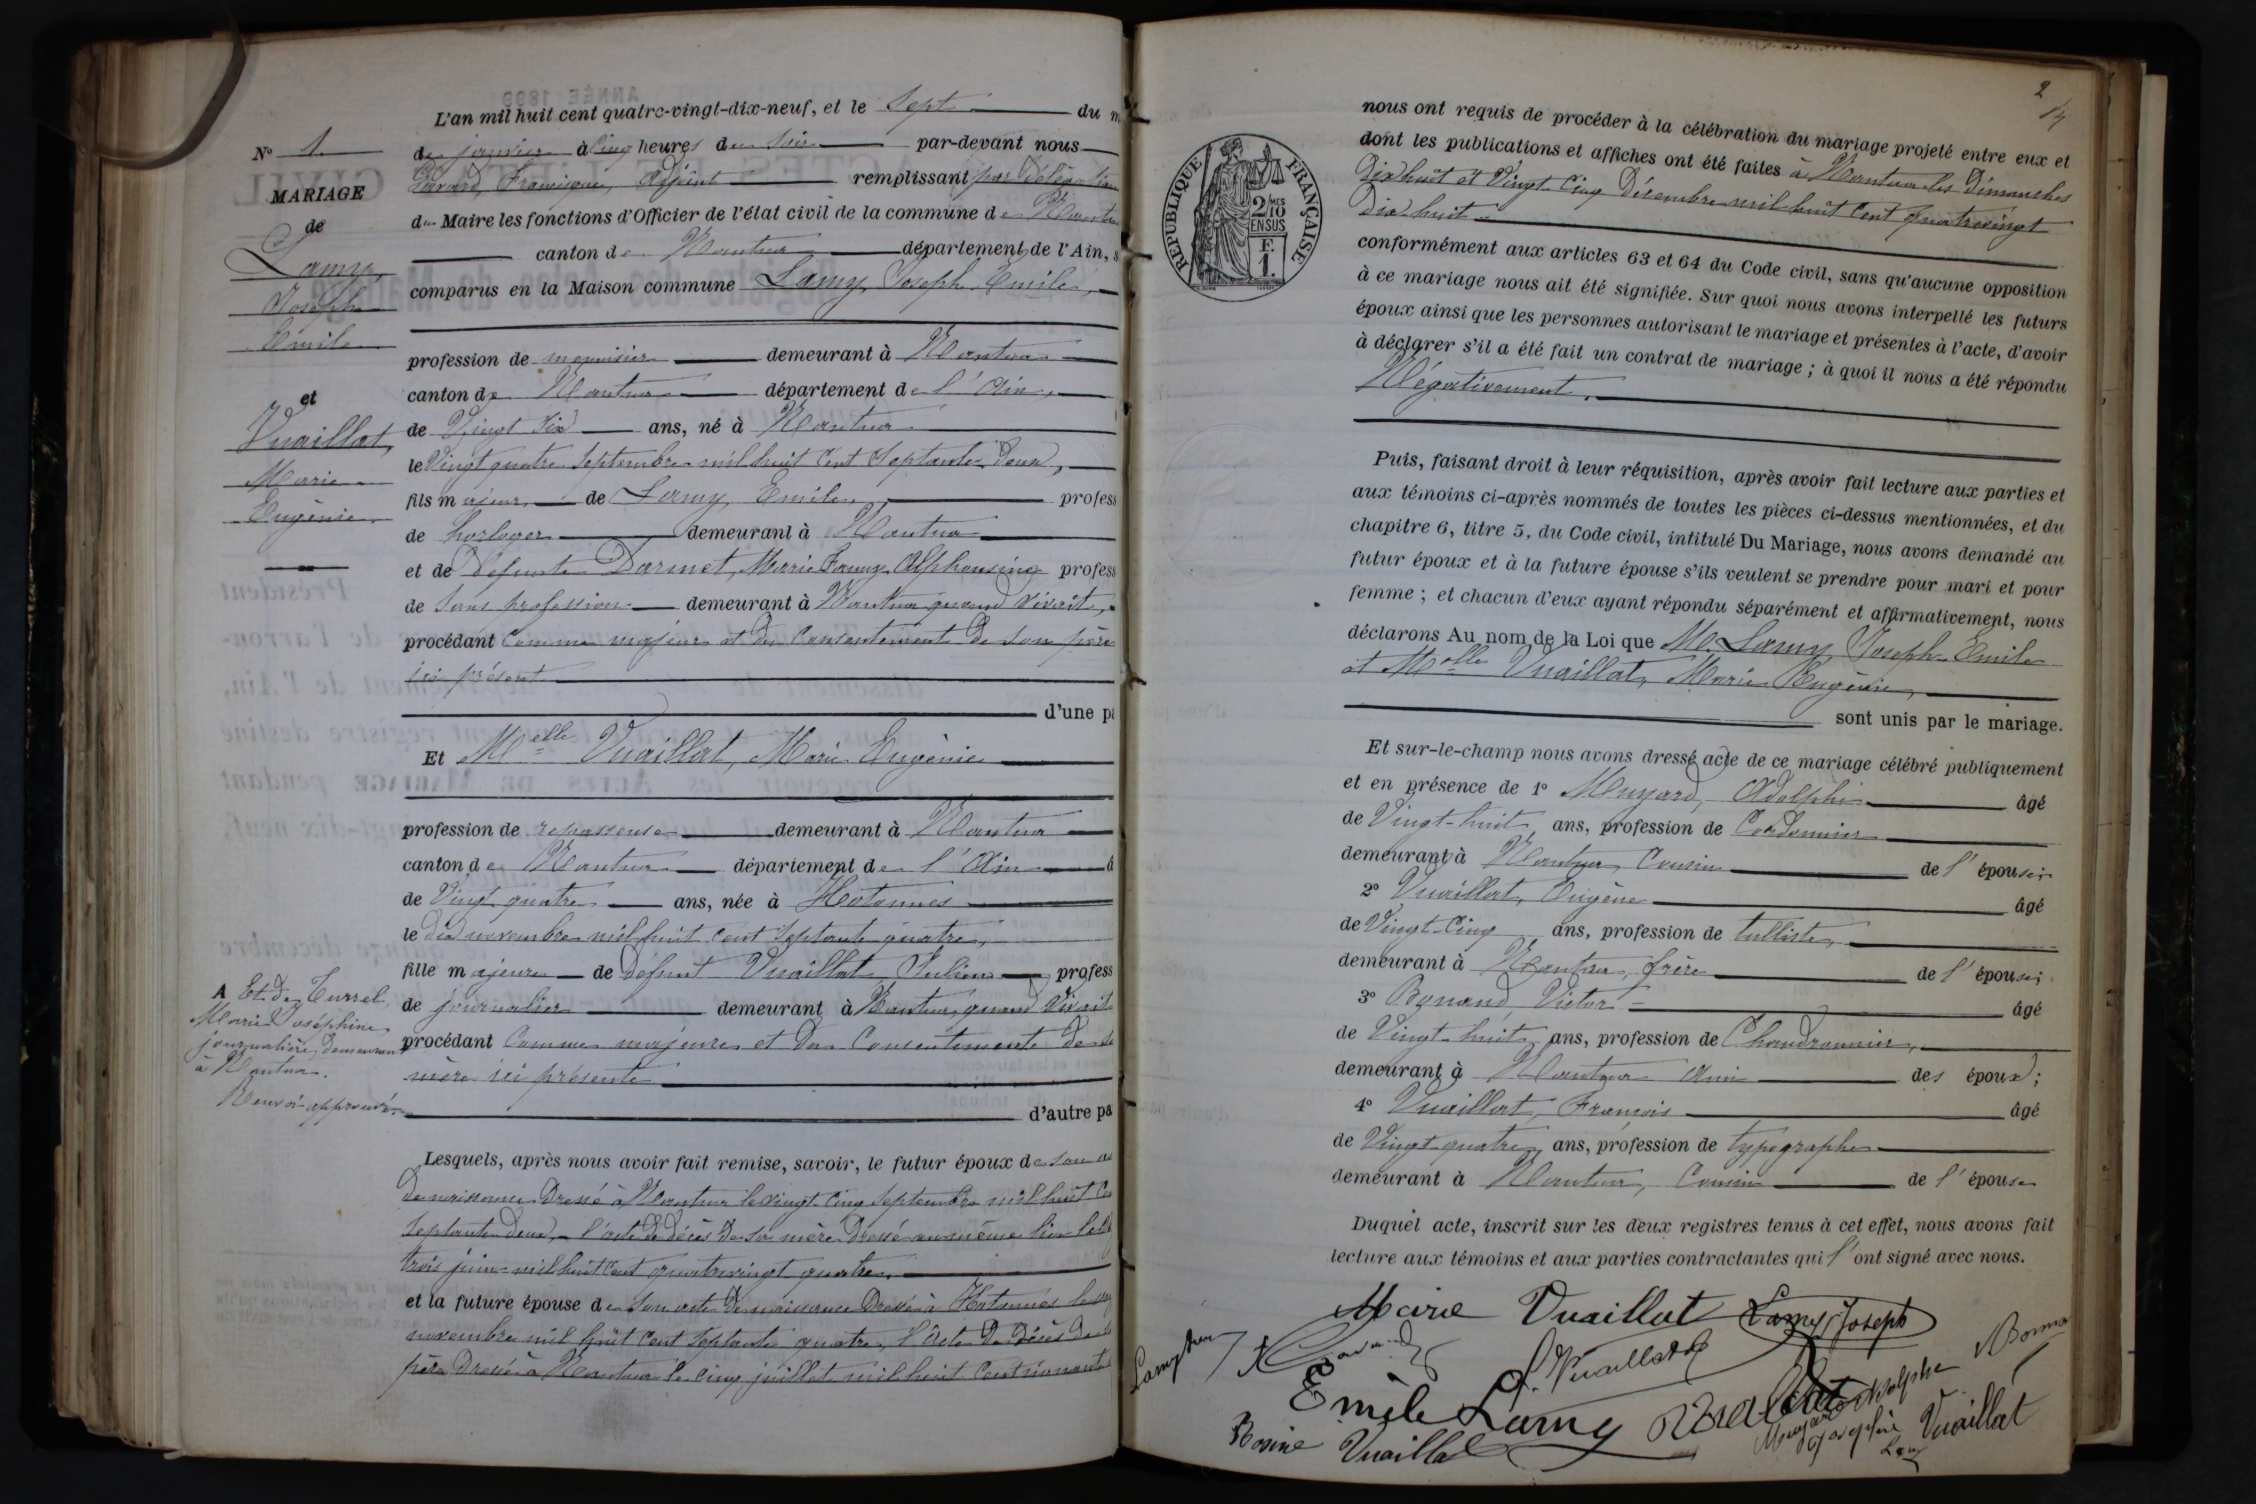 L'an mil huit cent quatre-vingt-dix-neuf, et le Sept du
de janvier à Cinq heures du Soir par-devant nous
Adjoint remplissant par délégation
du Maire les fonctions d'Officier de l'état civil de la commune de Nantua
canton de Nantua département de l'Ain,
comparus en la Maison commune Lamy, Joseph Emile,
profession de menuisier demeurant à Nantua
canton de Nantua département de l'Ain,
de Vingt Six ans, né à Nantua
le Vingt quatre Septembre mil huit Cent Septante Deux,
fils majeur de Lamy, Emile, profess
de horloger demeurant à Nantua
et de Défunte Darmet, Marie Fanny Alphonsine profess
de Sans profession demeurant à Nantua quand vivait,
procédant Comme majeur et du Consentement de Son père
ici présent
d'une pa
Et Melle Vuaillat, Marie Eugénie
profession de repasseuse demeurant à Nantua
canton de Nantua département de l'Ain
de Vingt quatre ans, née à Hotonnes
le Dix novembre mil huit cent Septante quatre,
fille majeure de Défunt Vuaillat, Julien profess
de journalier demeurant à Nantua, quand Vivait
procédant Comme majeure et du Consentement de
mère ici présente
d'autre pa
Lesquels, après nous avoir fait remise, savoir, le futur époux de Son
De naissance Dressé à Nantua le vingt-cinq Septembre mil huit
Septante Deux, l'acte de décès De sa mère Dressé au même lieu le
trois juin mil huit Cent quatrevingt quatre,
et la future épouse de Son acte De naissance Dressé à Hotonnes le
novembre mil huit Cent Septante quatre, l'Acte De Décès De
père Dressé à Nantua le Cinq juillet mil huit Cent nonante
No 1.
MARIAGE
de
Lamy,
Joseph
Emile
et
Vuaillat,
Marie
Eugénie
A Et de Curret,
Marie Joséphine
journalière, demeurant
à Nantua.
Renvoi approuvé.
2
nous ont requis de procéder à la célébration du mariage projeté entre eux et
dont les publications et affiches ont été faites à Nantua les Dimanches
Dix huit et Vingt-Cinq Décembre mil huit Cent quatrevingt
Dix huit
RÉPUBLIQUE FRANÇAISE
2/10 MES
EN SUS
F.
1.
conformément aux articles 63 et 64 du Code civil, sans qu'aucune opposition
à ce mariage nous ait été signifiée. Sur quoi nous avons interpellé les futurs
époux ainsi que les personnes autorisant le mariage et présentes à l'acte, d'avoir
à déclarer s'il a été fait un contrat de mariage ; à quoi il nous a été répondu
Négativement.
Puis, faisant droit à leur réquisition, après avoir fait lecture aux parties et
aux témoins ci-après nommés de toutes les pièces ci-dessus mentionnées, et du
chapitre 6, titre 5, du Code civil, intitulé Du Mariage, nous avons demandé au
futur époux et à la future épouse s'ils veulent se prendre pour mari et pour
femme ; et chacun d'eux ayant répondu séparément et affirmativement, nous
déclarons Au nom de la Loi que M. Lamy, Joseph Emile
et Melle Vuaillat, Marie Eugénie,
sont unis par le mariage.
Et sur-le-champ nous avons dressé acte de ce mariage célébré publiquement
et en présence de 1o Munard, Adolphe âgé
de Vingt-huit ans, profession de Cordonnier
demeurant à Nantua, Cousin de l'épouse;
2o Vuaillat, Eugène âgé
de Vingt-Cinq ans, profession de tulliste,
demeurant à Nantua, frère de l'épouse;
3o Victor âgé
de Vingt-huit ans, profession de Chaudronnier,
demeurant à Nantua ami des époux;
4o Vuaillat, François âgé
de Vingt quatre ans, profession de typographe
demeurant à Nantua, Cousin de l'épouse
Duquel acte, inscrit sur les deux registres tenus à cet effet, nous avons fait
lecture aux témoins et aux parties contractantes qui l'ont signé avec nous.
Marie Vuaillat Lamy Joseph
Vuaillat
Emile Lamy
Adolphe
Vuaillat
Rosine Vuaillat